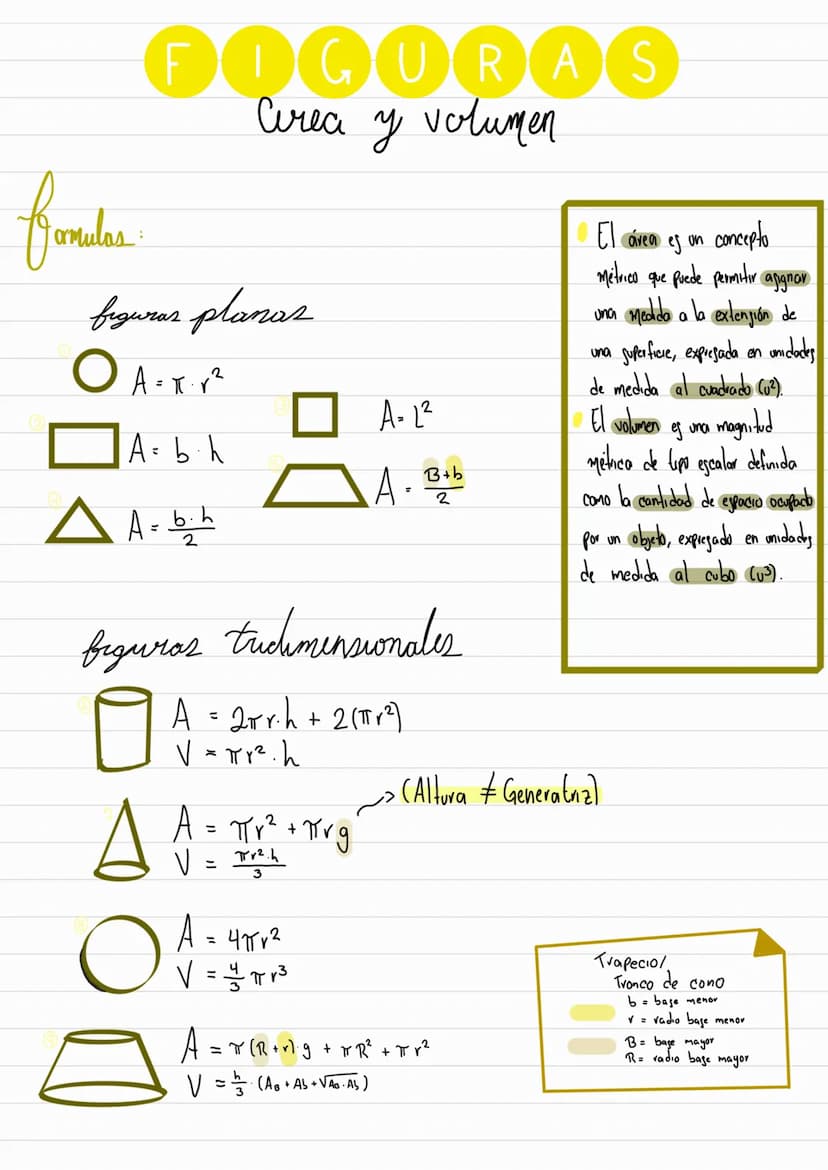 FIGURAS
Área y volumen
formulas:
figuras planas
A = π · r²
A = b · h
A = b · h / 2
A = L²
A = B + b / 2
El área es un concepto
métrico que puede permitir asignar
una medida a la extensión de
una superficie, expresada en unidades
de medida al cuadrado (u²).
El volumen es una magnitud
métrica de tipo escalar definida
como la cantidad de espacio ocupado
por un objeto, expresado en unidades
de medida al cubo (u³).
figuras tridimensionales
A = 2πr·h + 2(πr²)
V = πr²·h
A = πr² + πrg
(Altura ≠ Generatriz)
V = πr²·h / 3
A = 4πr²
V = 4/3 πr³
A = π(R + r)·g + πR² + πr²
V = h/3 · (AB + Ab + √AB·Ab)
Trapecio/
Tronco de cono
b = base menor
r = radio base menor
B = base mayor
R = radio base mayor